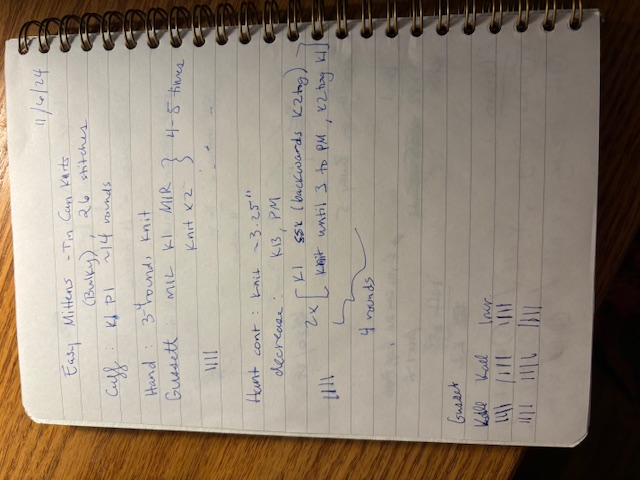 11/6/24
Easy Mittens - Tin Can Knits
(Bulky), 26 stitches
Cuff : K1 P1 ~14 rounds
Hand : 3-4 rounds knit
Gussett : M1L K1 M1R } 4-5 times
Knit x2
||||
Hant cont : Knit ~3.25"
decrease : K13, PM
2x [ K1 SSK (backwards K2tog)
knit until 3 to PM, K2tog K1 ]
||||
4 rounds
Gusset
Kall Kall Incr.
|||| |||| ||||
|||| |||| ||||